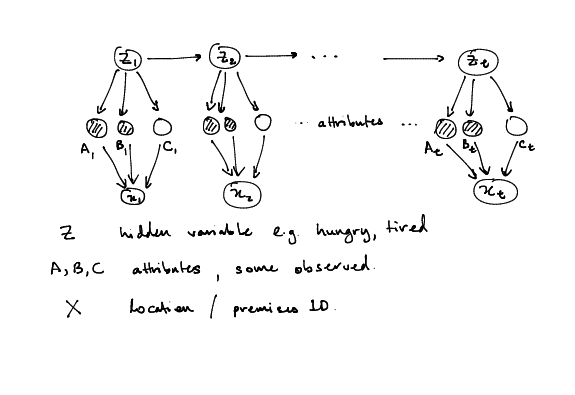 Z₁ Z₂ ... Zₜ
A₁ B₁ C₁ ... attributes ... Aₜ Bₜ Cₜ
x₁ x₂ xₜ
Z hidden variable e.g. hungry, tired
A, B, C attributes, some observed.
X Location / premises ID.